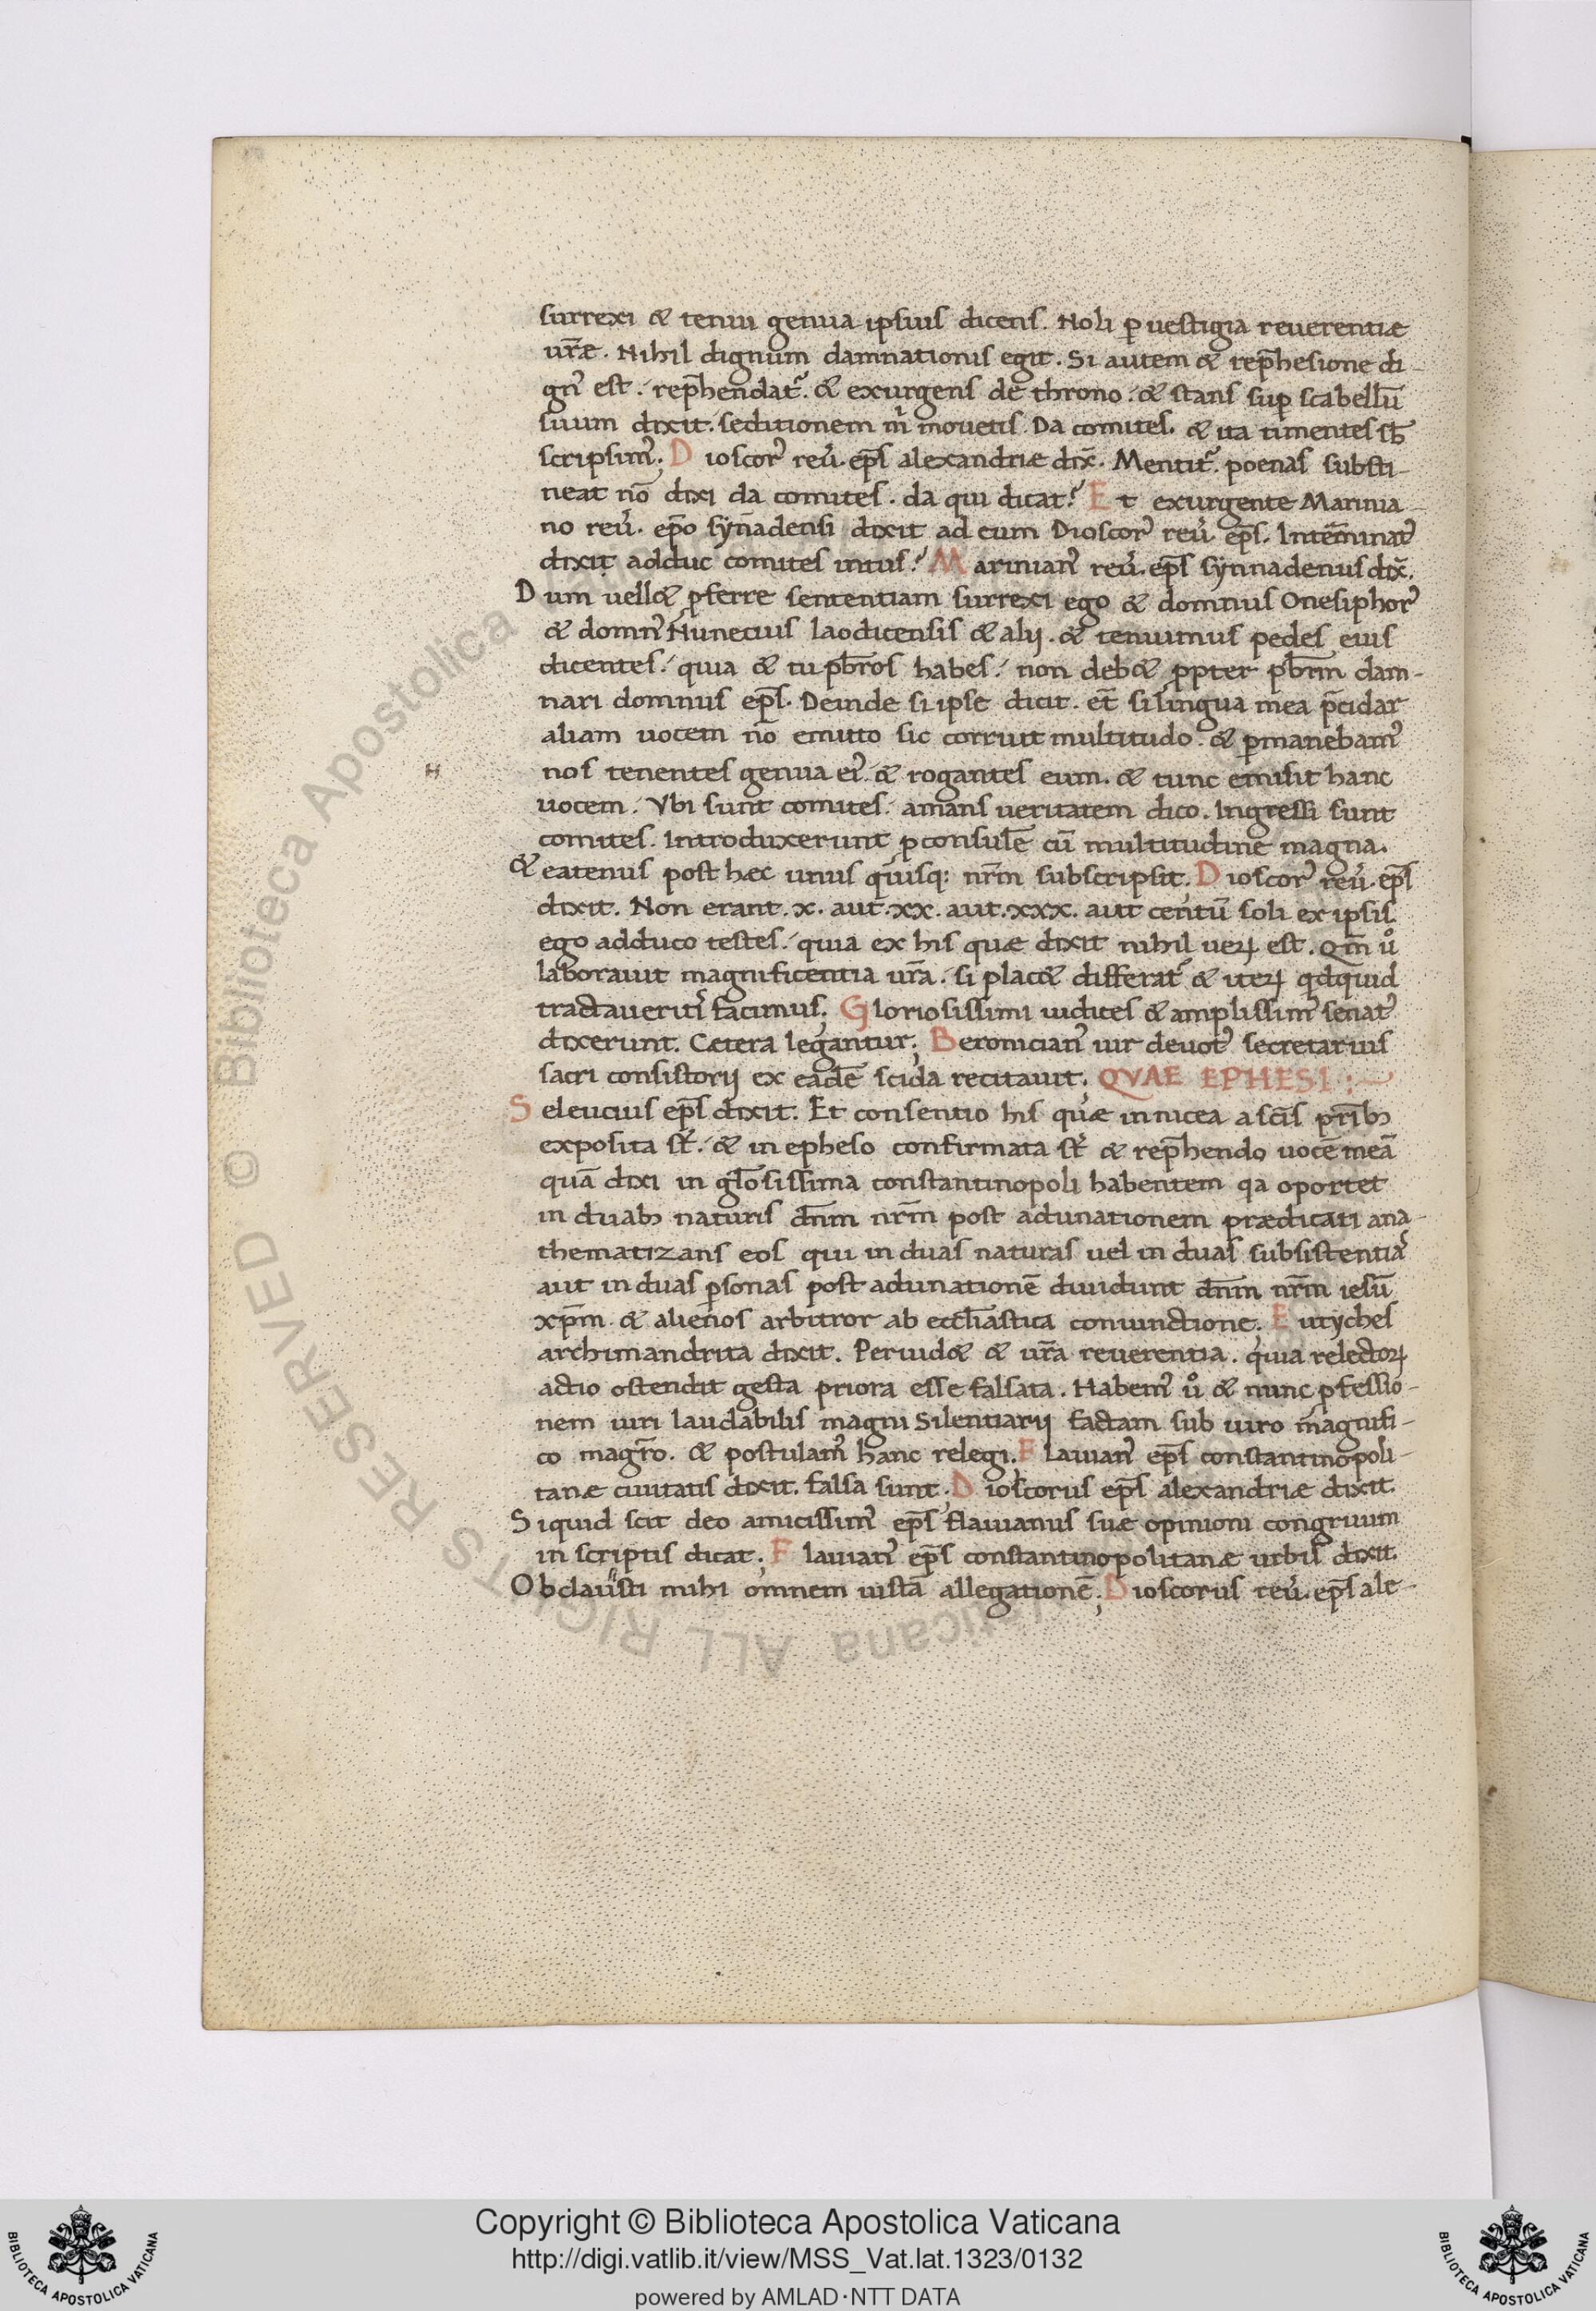 surrexi & tenui genua ipsius dicens. Noli ꝑ uestigia reuerentiæ
ur̄æ. Nihil dignum damnationis egit. Si autem & rep̄hesione di-
gn᾽ est. rep̄hendat᾽. & exurgens de throno. & stans suꝑ scabellū
suum dixit. seditionem m̄ mouetis. Da comites. & ita timentes sb̄
scripsim᾽. Dioscor᾽ reu̅. ep̄s alexandriæ dix̄. Mentit᾽. poenas substi-
neat nō dixi da comites. da qui dicat? Et exurgente Marinia
no reu̅. ep̄o syn̄adensi dixit ad eum Dioscor᾽ reu̅. ep̄s. Intēminat᾽
dixit adduc comites intus? Marinian᾽ reu̅. ep̄s synnadenus dix̄.
Dum uell& ꝓferre sententiam surrexi ego & domnus Onesiphor᾽
& domn᾽ Nunecius laodicensis & alij. & tenuimus pedes eius
dicentes. quia & tu pb̄ros habes. non deb& ꝓpter pb̄rm dam-
nari domnus ep̄s. Deinde si ipse dicit. et̄ si lingua mea p̄cidar
aliam uocem nō emitto sic corruit multitudo. & ꝑmanebam᾽
nos tenentes genua ei᾽. & rogantes eum. & tunc emisit hanc
uocem. Vbi sunt comites. amans ueritatem dico. Ingressi sunt
comites. Introduxerunt ꝓconsulē cū multitudine magna.
& eatenus post hæc unus quisq: nr̄m subscripsit. Dioscor᾽ reu̅. ep̄s
dixit. Non erant. x. aut. xx. aut. xxx. aut centū soli ex ipsis.
ego adduco testes. quia ex his quæ dixit nihil ueꝝ est. Qm̄ uͦ
laborauit magnificentia ur̄a. si plac& differat᾽ & iteꝝ qdquid
tractauerit᾽ facimus. Gloriosissimi iudices & amplissim᾽ senat᾽
dixerunt. Cætera legantur. Beronician᾽ uir deuot᾽ secretarius
sacri consistorij ex eadē scida recitauit. QVAE EPHESI :~
Seleucius ep̄s dixit. Et consentio his quæ in nicea a scīs pr̄ib;
exposita st̄. & in epheso confirmata st̄ & rep̄hendo uocē meā
quā dixi in gl̄osissima constantinopoli habentem qa oportet
in duab; naturis dn̄m nr̄m post adunationem prædicari ana-
thematizans eos qui in duas naturas uel in duas subsistentia᾽
aut in duas ꝑsonas post adunationē diuidunt dn̄m nr̄m iesū
xp̄m. & alienos arbitror ab eccl̄iastica coniunctione. Eutyches
archimandrita dixit. Peruid& & ur̄a reuerentia. quia relectoꝝ
actio ostendit gesta priora esse falsata. Habem᾽ uͦ & nunc ꝓfessio-
nem uiri laudabilis magni Silentiarij factam sub uiro magnifi-
co magr̄o. & postulam᾽ hanc relegi. Flauian᾽ ep̄s constantinopoli-
tanæ ciuitatis dixit. falsa sunt. Dioscorus ep̄s alexandriæ dixit.
Siquid scit deo amicissim᾽ ep̄s flauianus suæ opinioni congruum
in scriptis dicat. Flauian᾽ ep̄s constantinopolitanæ urbis dixit.
Obclausti mihi omnem iustā allegationē. Dioscorus reu̅. ep̄s ale-
H
© Biblioteca Apostolica Vaticana ALL RIGHTS RESERVED
Copyright © Biblioteca Apostolica Vaticana
http://digi.vatlib.it/view/MSS_Vat.lat.1323/0132
powered by AMLAD·NTT DATA
BIBLIOTECA APOSTOLICA VATICANA
BIBLIOTECA APOSTOLICA VATICANA